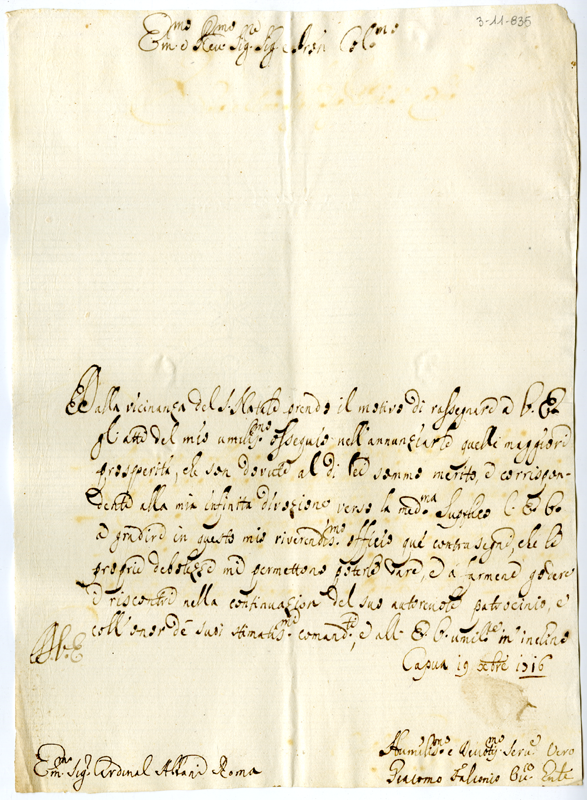 3-11-835
Em.mo e Rev.mo Sig.r Sig.r Pron Col.mo
Dalla vicinanza del S. Natale prendo il motivo di rassegnare a V. E.
gli atti del mio umiliss.mo ossequio nell'annunziarle quelle maggiori
prosperità, che son dovute al di lei sommo merito, e corrispon-
denti alla mia infinita divozione verso la med.ma Supplico l' E. V.
a gradire in questo mio riverentiss.mo officio que' contrasegni, che le
proprie debolezze mi permettono poterle dare, e a farmene godere
i riscontri nella continuazion del suo autorevole patrocinio, e
coll'onor de suoi stimatiss.mi comand.ti, e all' E. V. umilm.e m'inclino
Capua 19 Xbre 1716
Em.mo Sig.r Cardinal Albani Roma
Humiliss.mo e Devotiss.mo Serv.e Vero
Giacomo Falconio